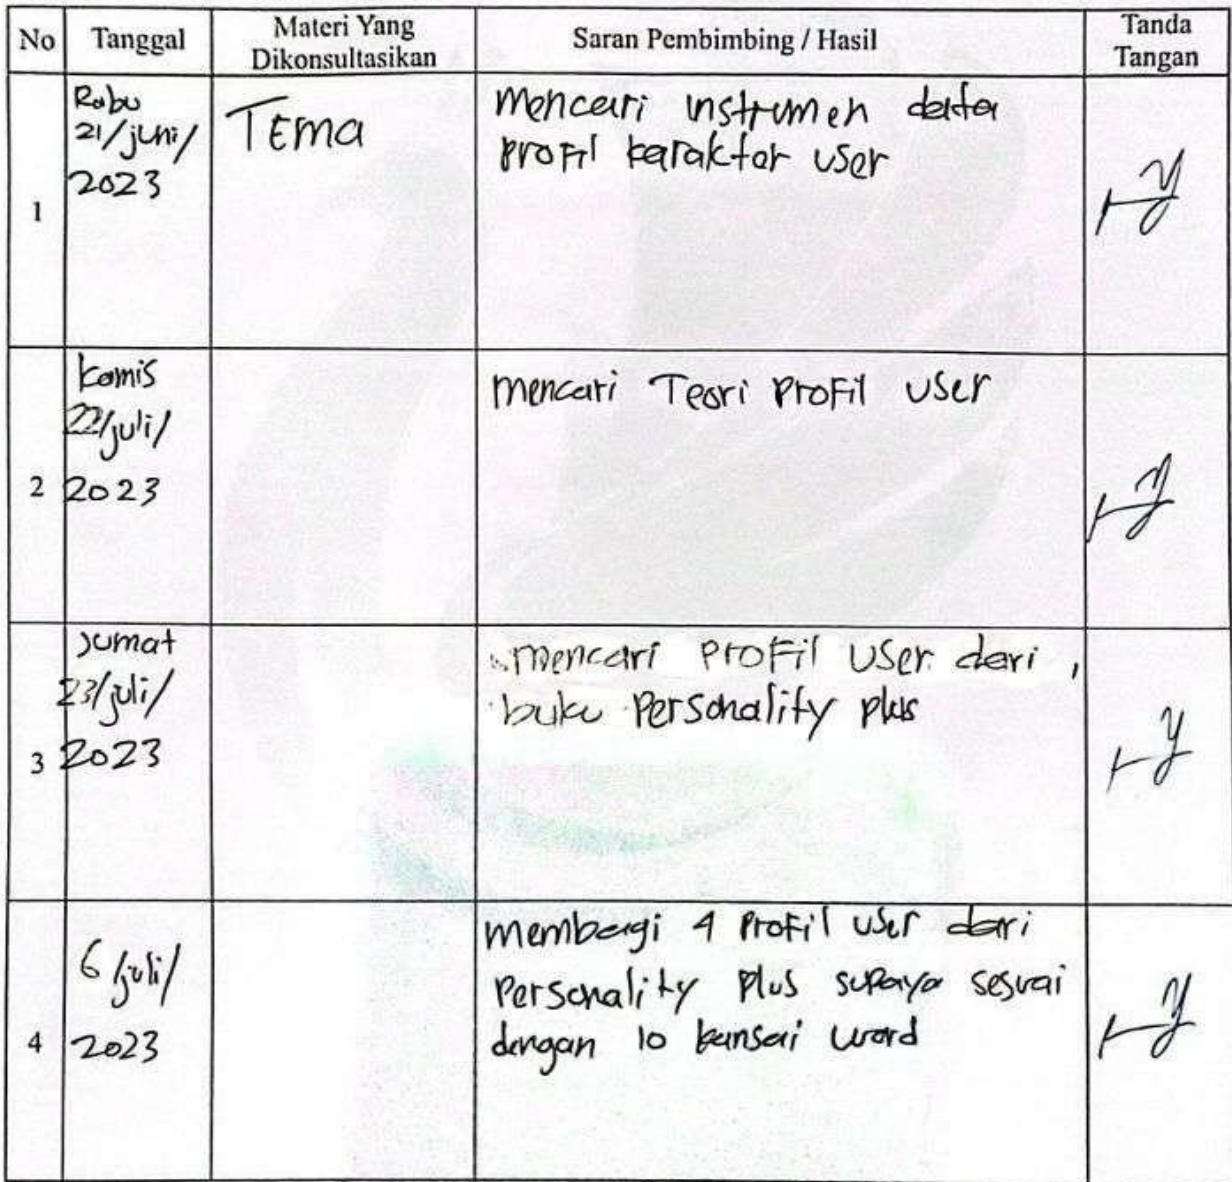 No Tanggal Materi Yang Dikonsultasikan Saran Pembimbing / Hasil Tanda Tangan
1
Rabu
21/juni/
2023
TEMA
mencari instrumen data
profil karakter user
2
kamis
22/juli/
2023
mencari Teori Profil User
3
Jumat
23/juli/
2023
mencari Profil User dari,
buku Personality plus
4
6/juli/
2023
membagi 4 Profil user dari
Personality Plus supaya sesuai
dengan 10 kansai word